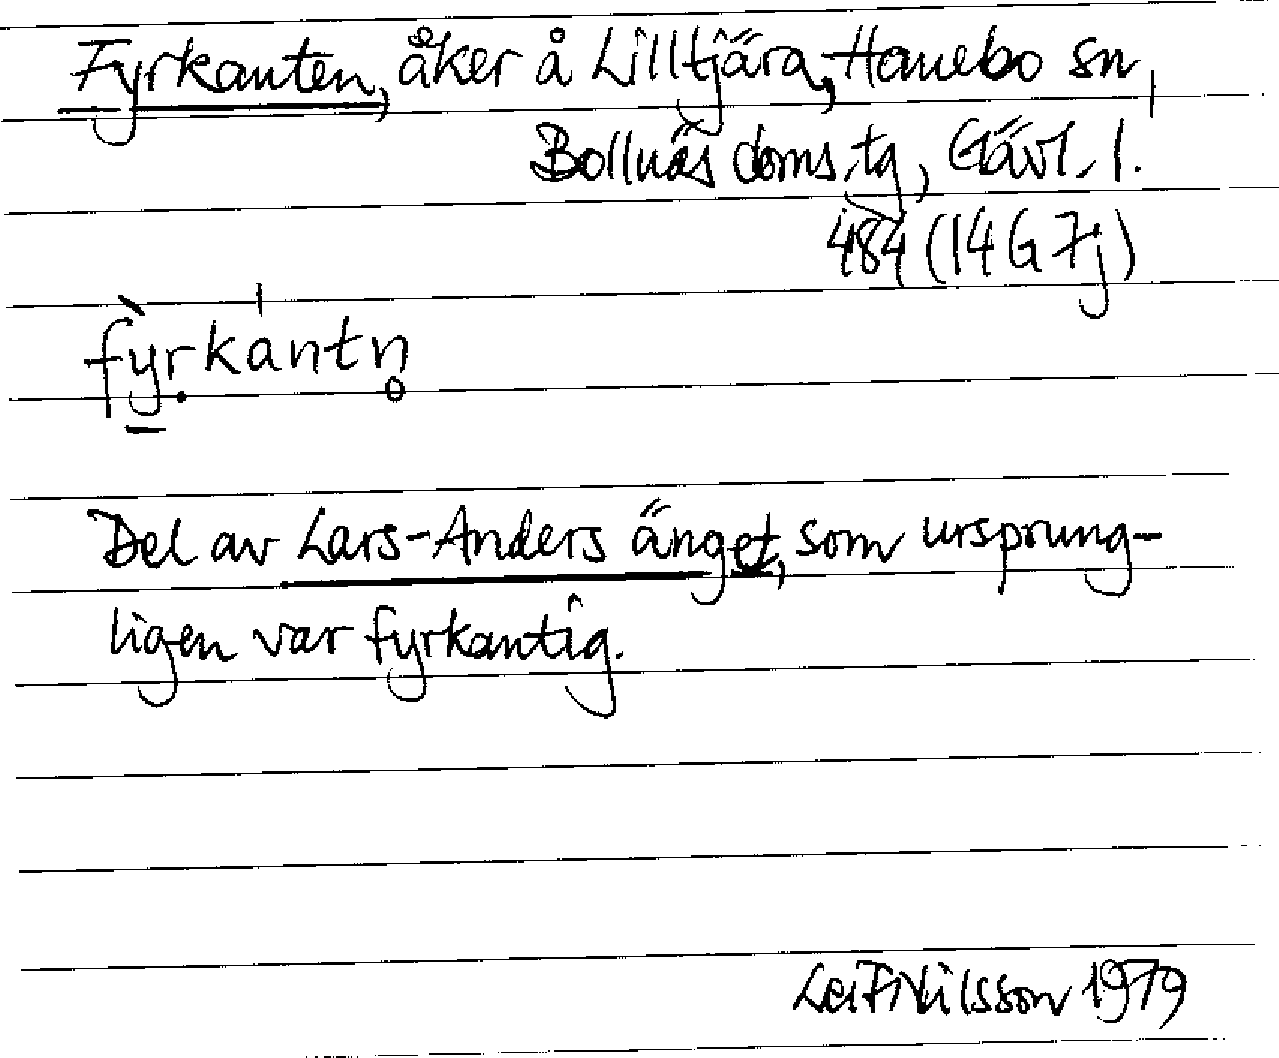 Fyrkanten, åker å Lilltjära, Hanebo sn,
Bollnäs doms.tg, Gävl. l.
484 (14G 7j)
fỳ̲rkantn̥
Del av Lars-Anders änget, som ursprung-
ligen var fyrkantig.
Leif Nilsson 1979